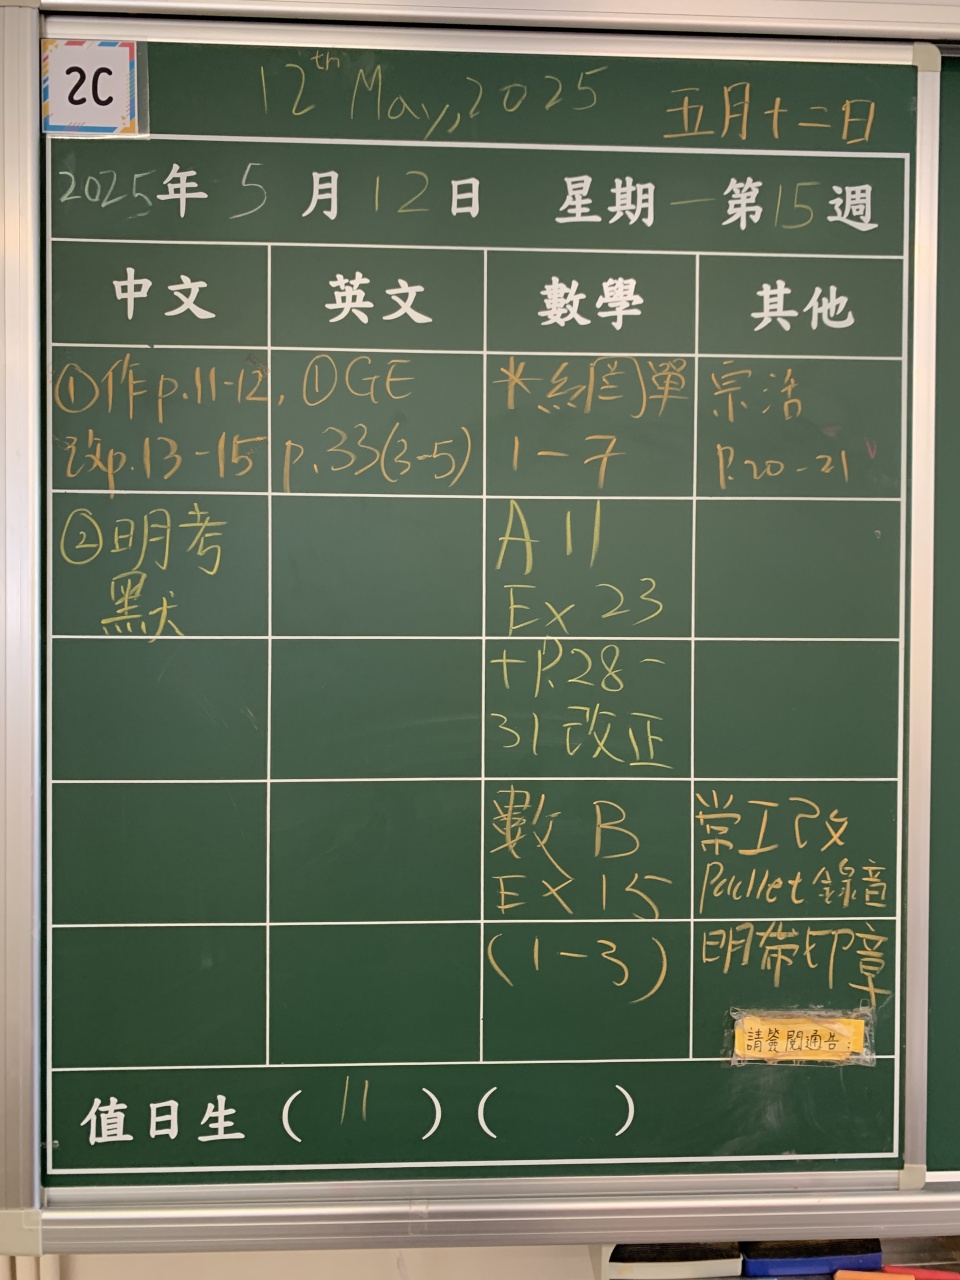 2C
12th May, 2025
五月十二日
2025年 5 月 12 日 星期一第 15 週
中文
英文
數學
其他
①作p.11-12,
改p.13-15
②明考
默
①GE
p.33(3-5)
1-7
A 11
Ex 23
+P.28-
31改正
數 B
Ex 15
(1-3)
P.20-21
常工改
錄音
明帶印章
請簽閱通告:
值日生 ( 11 ) ( )